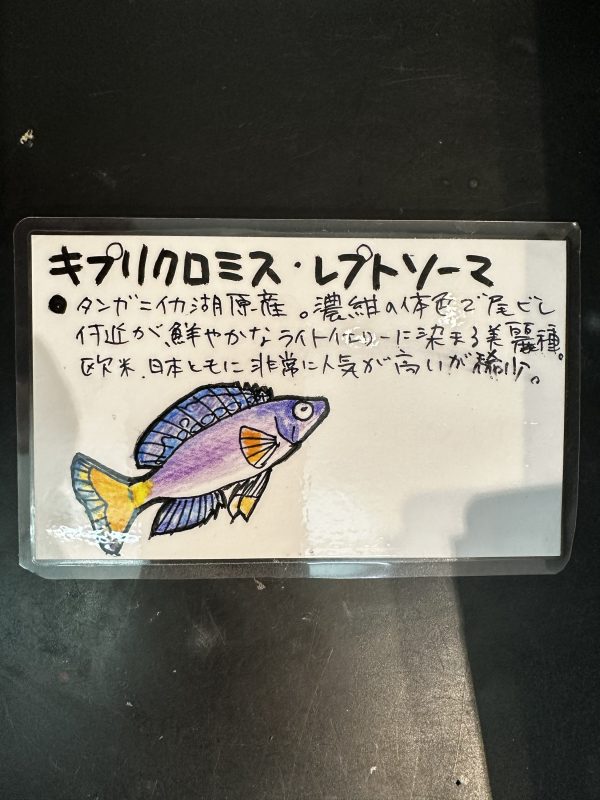 キプリクロミス・レプトソーマ
●タンガニイカ湖原産。濃紺の体色で尾ビレ
付近が鮮やかなライトイエローに染まる美麗種。
欧米、日本ともに非常に人気が高いが稀少。